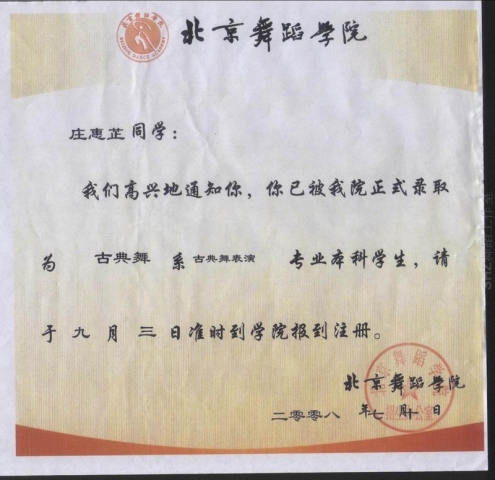 北京舞蹈學院
庄惠芷同学：
我们高兴地通知你，你已被我院正式录取
为 古典舞 系 古典舞表演 专业本科学生，请
于 九 月 三 日准时到学院报到注册。
北京舞蹈學院
二零零八 年七月十日